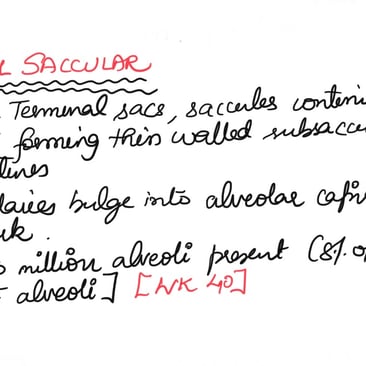 L SACCULAR
Terminal sacs, saccules conteni
forming thin walled subsaccu
lines
laries bulge into alveolar cap
rk.
million alveoli present (8% o
alveoli] [WK 40]